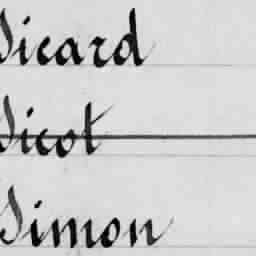 Sicard
Sicot
Simon